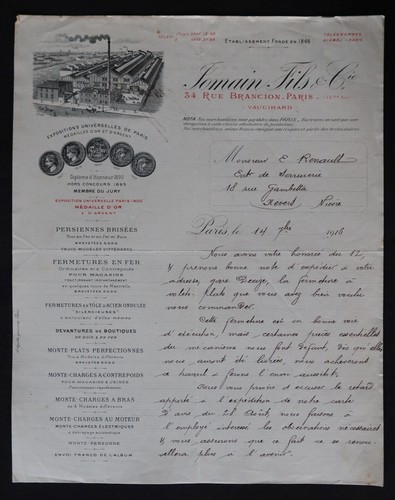 ETABLISSEMENT FONDÉ EN 1846
Jomain Fils & Cie
34 RUE BRANCION_PARIS
VAUGIRARD
EXPOSITIONS UNIVERSELLES DE PARIS
MÉDAILLES D'OR ET D'ARGENT
Diplôme d'Honneur
HORS CONCOURS
MEMBRE DU JURY
EXPOSITION UNIVERSELLE PARIS-1900
MÉDAILLE D'OR
D'ARGENT
Monsieur E. Renault
Ent. de Serrurerie
18 rue Gambetta
Nevers Nièvre
Paris, le 14 1916
PERSIENNES BRISÉES
FERMETURES EN FER
POUR MAGASINS
FERMETURES À VOLS D'ACIER ONDULÉ
SILENCIEUSES
DEVANTURES DE BOUTIQUES
EN BOIS & EN FER
MONTE-PLATS PERFECTIONNÉS
MONTE-CHARGES À CONTREPOIDS
POUR MAGASINS & USINES
MONTE-CHARGES À BRAS
MONTE-CHARGES AU MOTEUR
MONTE-CHARGES ÉLECTRIQUES
MONTE-PERSONNE
ENVOI FRANCO DE L'ALBUM
Nous avons votre honorée du 12,
& prenons bonne note d'expédier à votre
adresse, gare Decize, la fermeture à
volets plats que vous avez bien voulu
nous commander.
Cette fermeture est en bonne voie
d'exécution, mais certaines pièces essentielles
du mécanisme nous font défaut, Dès qu'elles
nous auront été livrées, nous achèverons
ce travail & ferons l'envoi aussitôt.
Nous vous prions d'excuser le retard
apporté à l'expédition de notre carte
d'avis du Août, nous faisons à
l'employé intéressé les observations nécessaires
& vous assurons que ce fait ne se renou-
vellera plus à l'avenir.